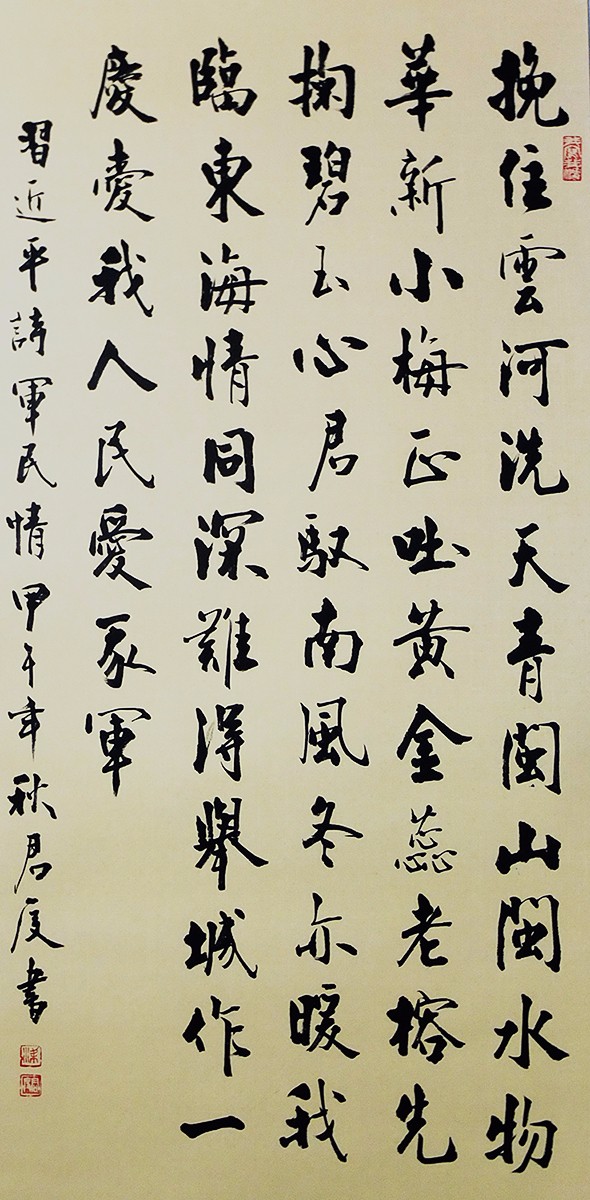 挽住雲河洗天青閩山閩水物
華新小梅正吐黄金蕊老榕先
掬碧玉心君馭南風冬亦暖我
臨東海情同深難得舉城作一
慶愛我人民愛我軍
習近平詩軍民情甲午年秋君度書